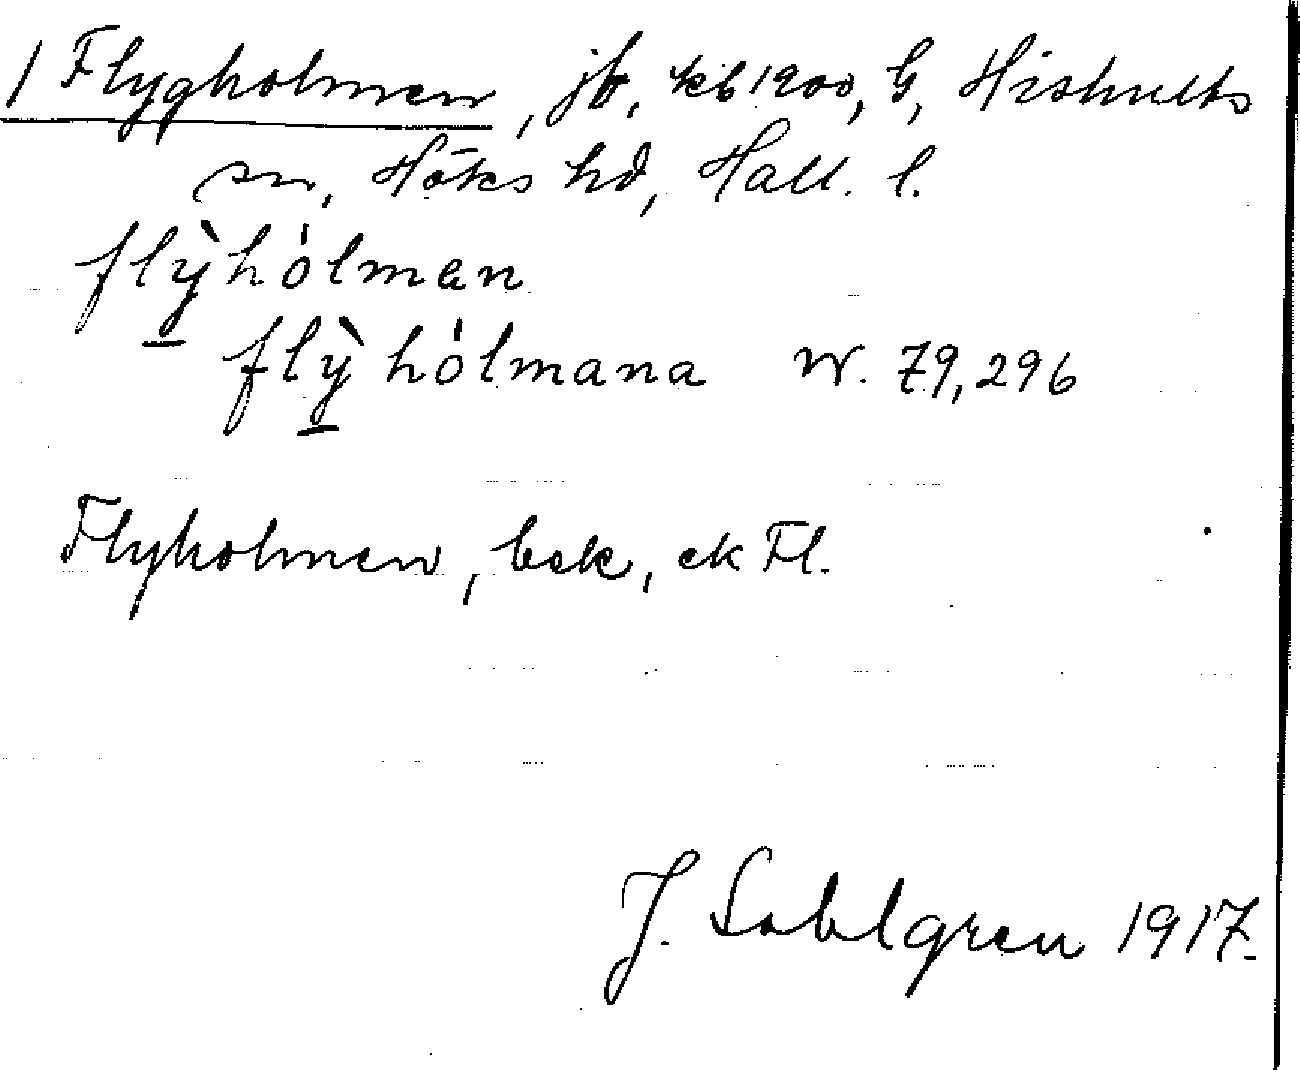 / Flygholmen, jb, kb 1900, G, Hishults
sn, Höks hd, Hall. l.
flỳhólman
flỳhólmana W. 79,296
Flyholmen, bsk, ek Fl.
J. Sahlgren 1917.